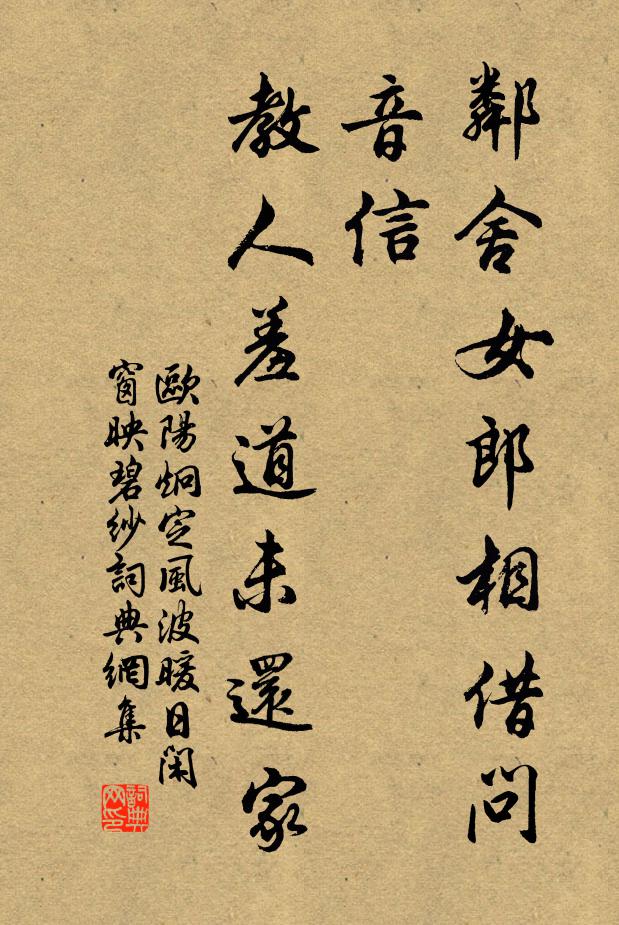 鄰舍女郎相借問
音信
教人羞道未還家
歐陽炯定風波暖日閑
窗映碧紗詞典網集
詞典
网印